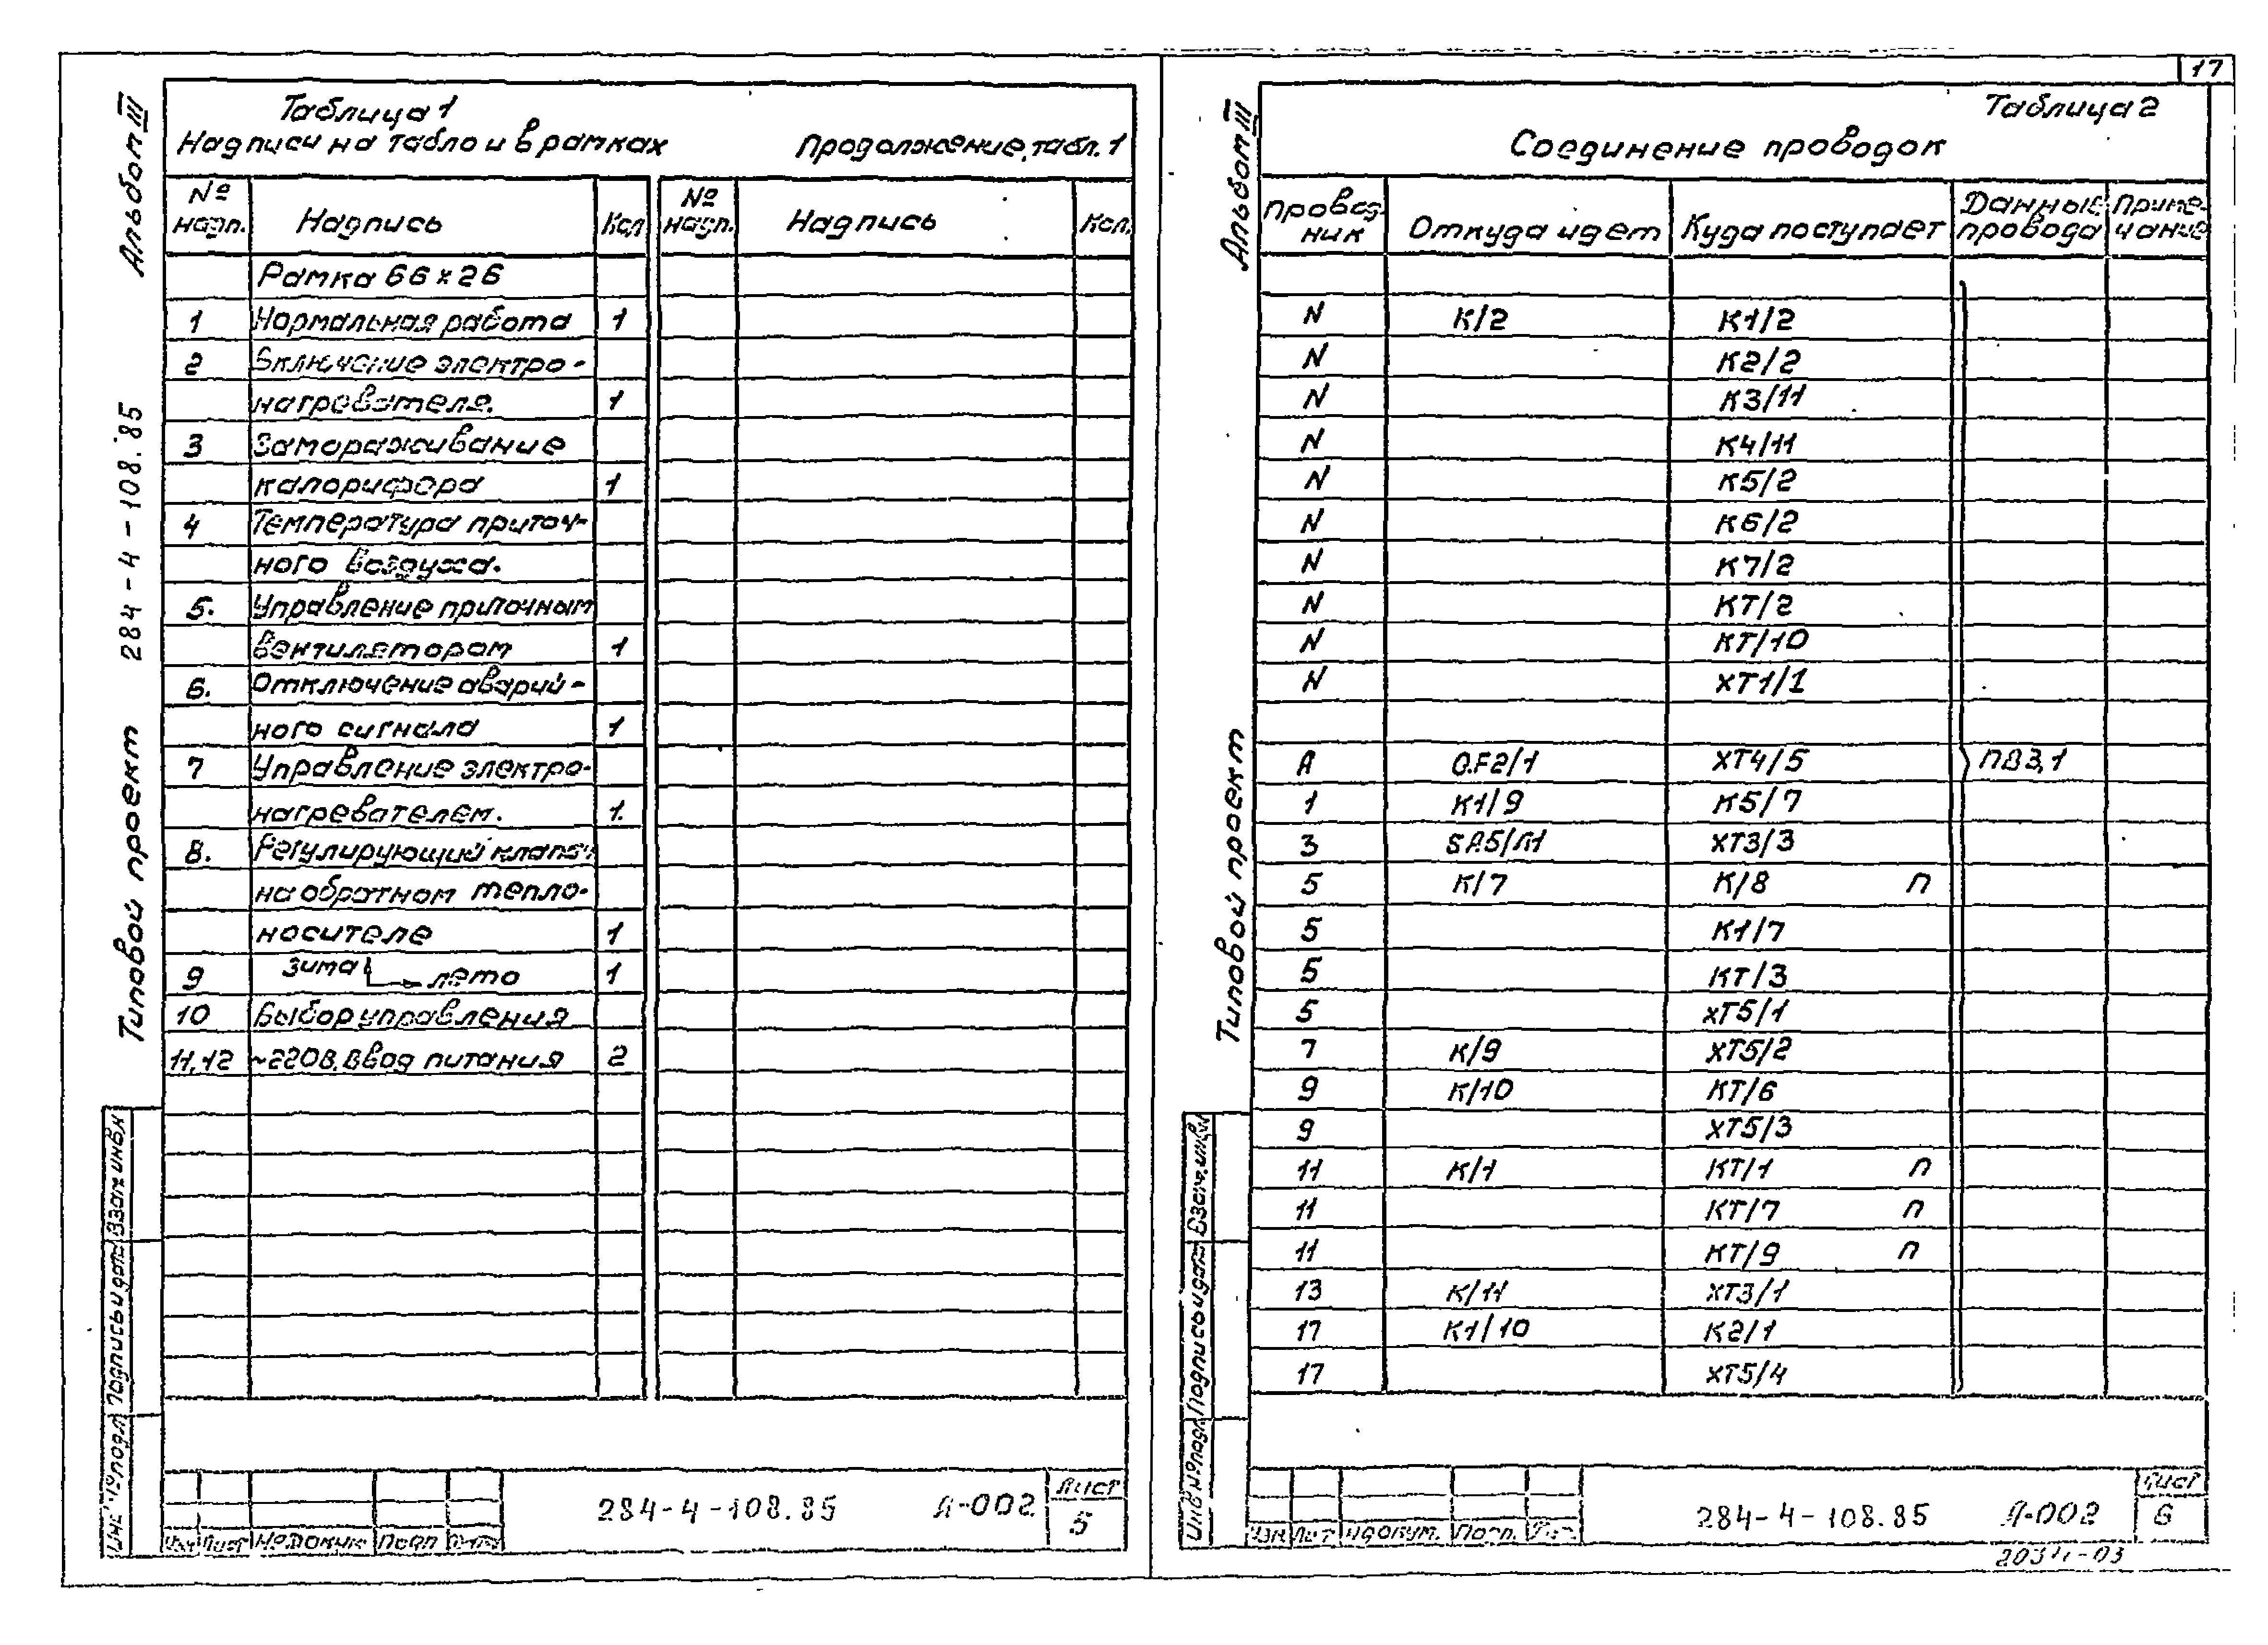 Альбом III
284-4-108.85
Типовой проект
Таблица 1
Надписи на табло и в рамках
Продолжение, табл. 1
№ надп. Надпись Кол № надп. Надпись Кол.
Рамка 66×26
1 Нормальная работа 1
2 Включение электро-
нагревателя. 1
3 Замораживание
калорифера 1
4 Температура приточ-
ного воздуха.
5. Управление приточным
вентилятором 1
6. Отключение аварий-
ного сигнала 1
7 Управление электро-
нагревателем. 1.
8. Регулирующий клапан
на обратном тепло-
носителе 1
9 зима лето 1
10 Выбор управления
11,12 ~220В, ввод питания 2
Взам инв №
Подпись и дата
Инв № подл
Изм Лист № докум Подп Дата
284-4-108.85 А-002 Лист
5
17
Альбом III
Типовой проект
Таблица 2
Соединение проводок
Провод-
ник Откуда идет Куда поступает Данные провода Приме-
чание
N К/2 К1/2
N К2/2
N К3/11
N К4/11
N К5/2
N К6/2
N К7/2
N КТ/2
N КТ/10
N ХТ1/1
А QF2/1 ХТ4/5 ПВ3,1
1 К1/9 К5/7
3 SA5/Л1 ХТ3/3
5 К/7 К/8 п
5 К1/7
5 КТ/3
5 ХТ5/1
7 К/9 ХТ5/2
9 К/10 КТ/6
9 ХТ5/3
11 К/1 КТ/1 п
11 КТ/7 п
11 КТ/9 п
13 К/11 ХТ3/1
17 К1/10 К2/1
17 ХТ5/4
Взам. инв №
Подпись и дата
Инв № подл
Изм Лист № докум. Подп. Дата
284-4-108.85 А-002 Лист
6